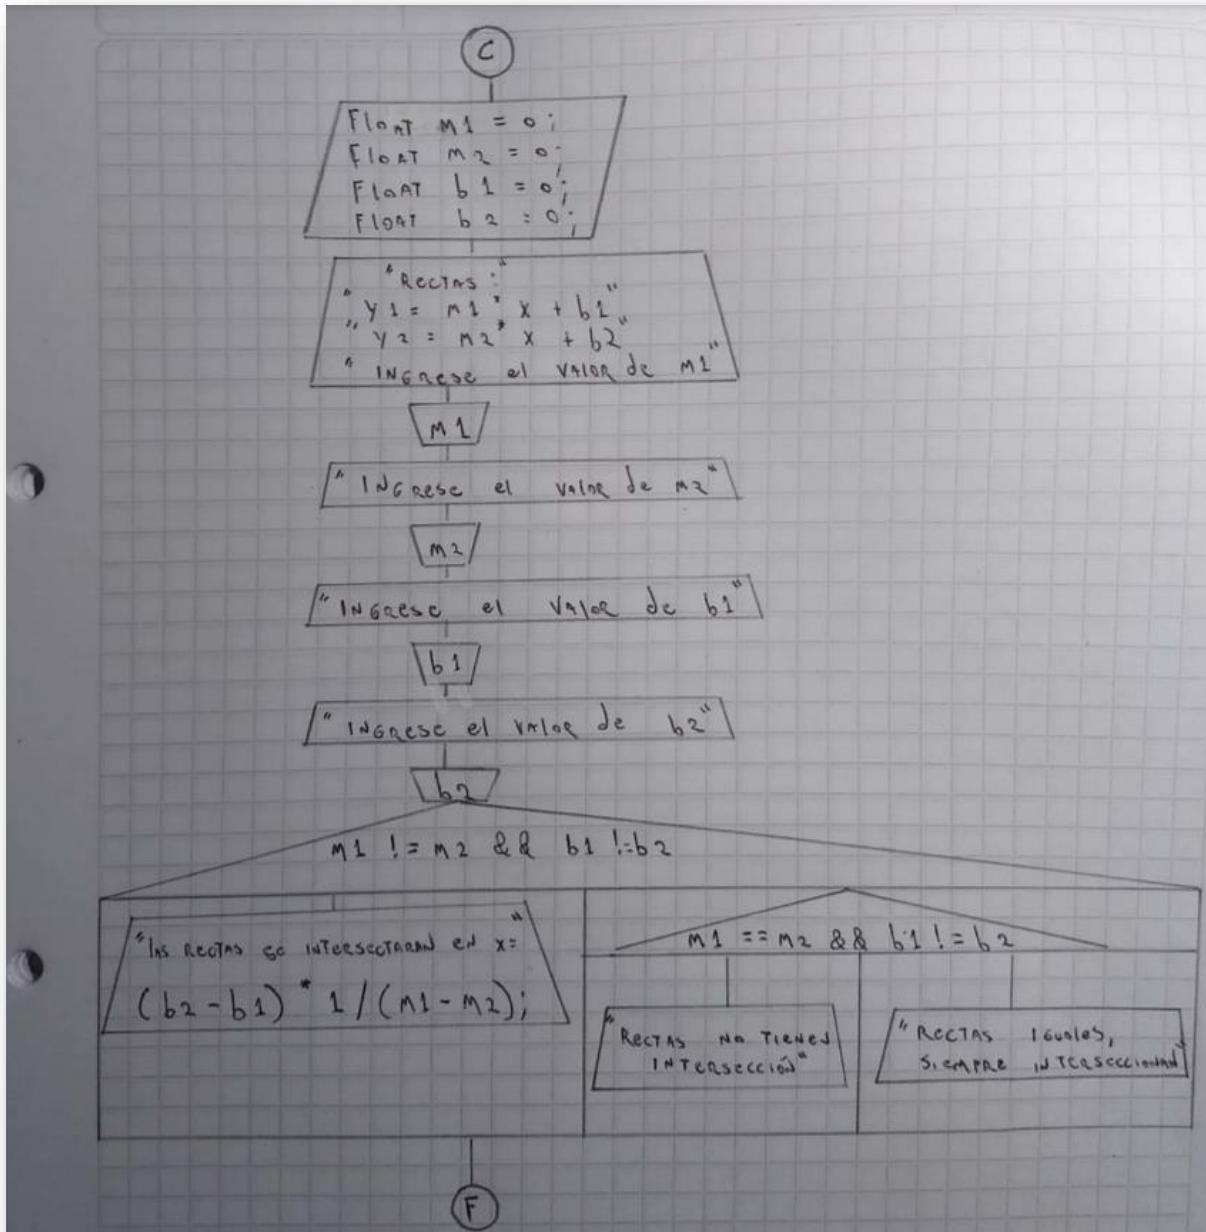 C
FLOAT m1 = 0;
FLOAT m2 = 0;
FLOAT b1 = 0;
FLOAT b2 = 0;
"RECTAS:"
"y1 = m1 * x + b1"
"y2 = m2 * x + b2"
"INGrese el VALOR de m1"
m1
"INGrese el valor de m2"
m2
"INGrese el VAlor de b1"
b1
"INGrese el VAlor de b2"
b2
m1 != m2 && b1 != b2
"lAS RECTAS se INTERSECTARAN en x="
(b2-b1) * 1/(m1-m2);
m1 == m2 && b1 != b2
"RECTAS NO TIENEN
INTERSECCIÓN"
"RECTAS IGUALES,
SIEMPRE INTERSECCIONAN"
F